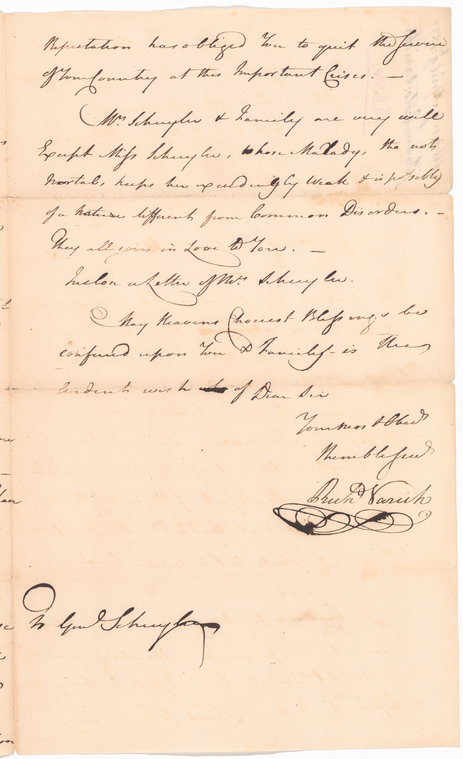 Reputation has obliged You to quit the Service
of Your Country at this Important Crises. —
Mrs. Schuyler & Family are very well
Except Miss Schuyler, whose Malady, tho not
Mortal, keeps her exceedingly weak & is possibly
of a Nature different from Common Disorders. —
They all join in Love to You. —
Inclose a Letter of Mrs. Schuyler.
May Heavens Choicest Blessings be
confered upon You & Family is the
Ardent wish of Dear Sir
Your most Obed
Humble Servt
Richd Varick
To Genl Schuyler